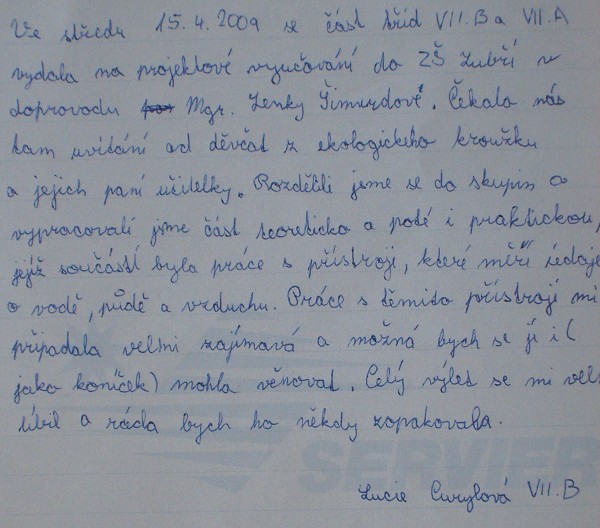 Ve středu 15.4.2009 se část tříd VII.B a VII.A
vydala na projektové vyučování do ZŠ Zubří v
doprovodu Mgr. Lenky Šimurdové. Čekalo nás
tam uvítání od děvčat z ekologického kroužku
a jejich paní učitelky. Rozdělili jsme se do skupin a
vypracovali jsme část teoreticko a poté i praktickou,
jejíž součástí byla práce s přístroji, které měří údaje
o vodě, půdě a vzduchu. Práce s těmito přístroji mi
připadala velmi zajímavá a možná bych se jí i (
jako koníček) mohla věnovat. Celý výlet se mi vel
líbil a ráda bych ho někdy zopakovala.
SERVIER
Lucie VII.B